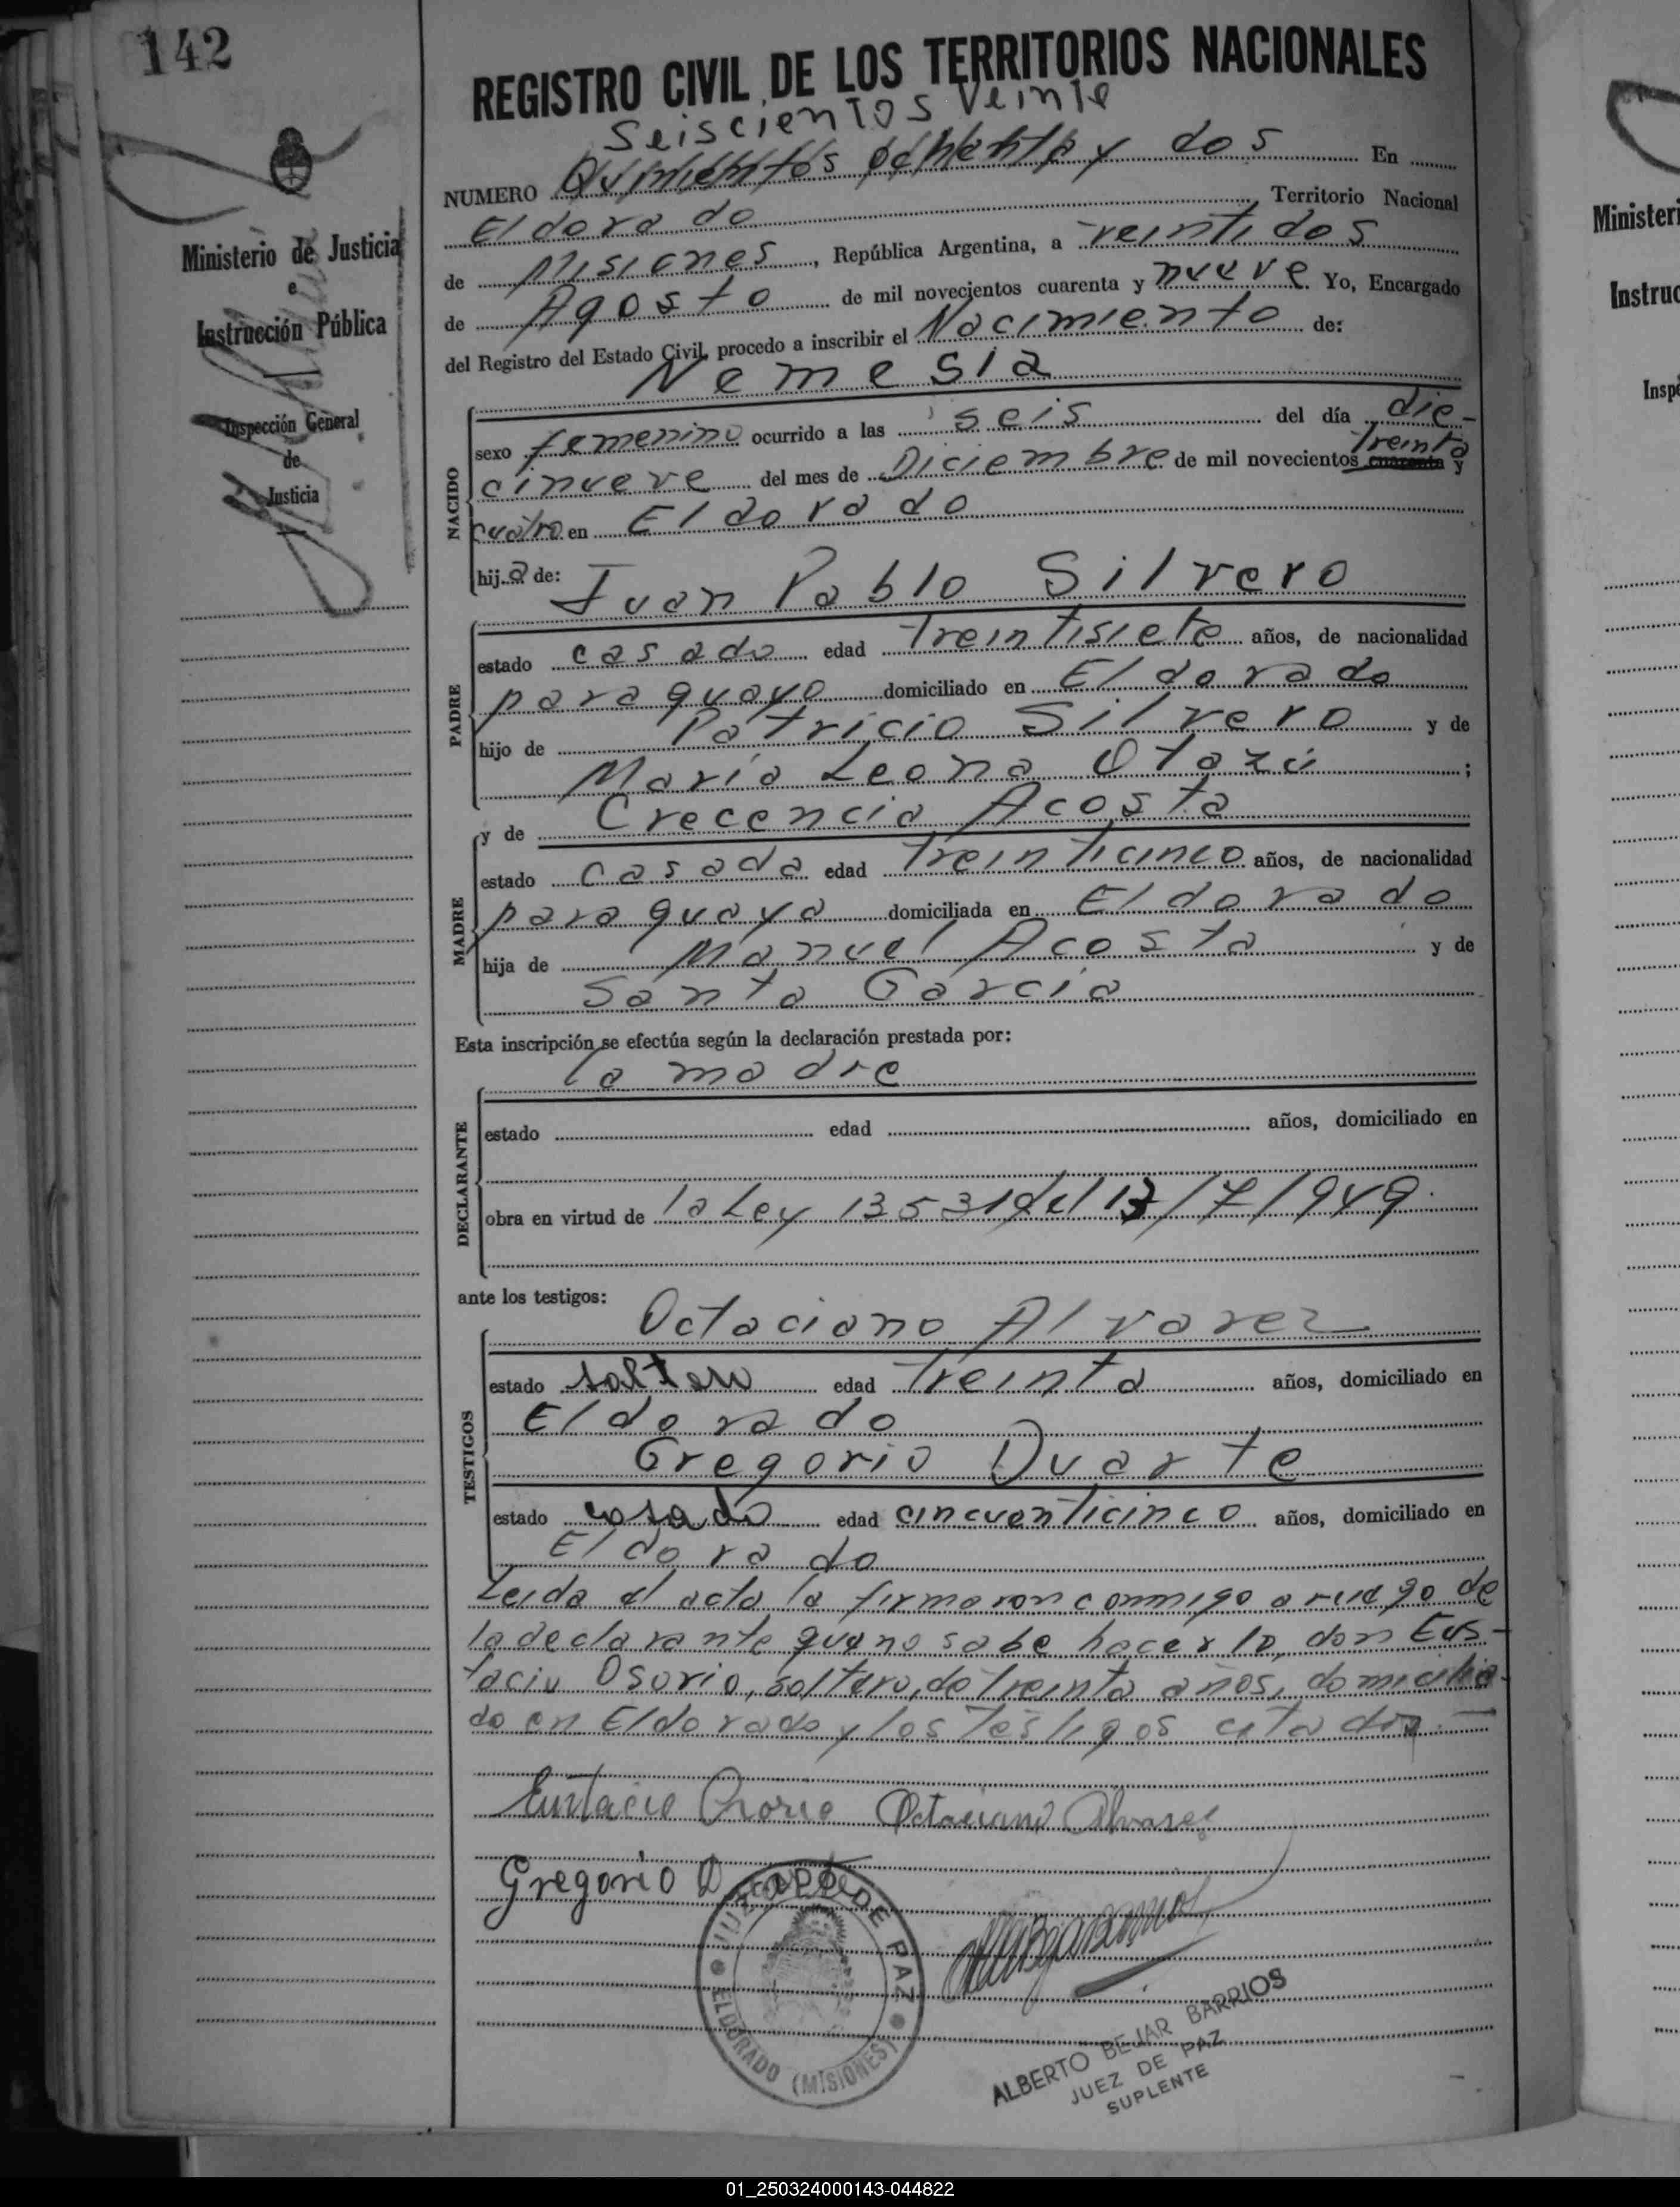 142
REGISTRO CIVIL DE LOS TERRITORIOS NACIONALES
Seiscientos Veinte
NUMERO Quinientos ochenta y dos En
Eldorado Territorio Nacional
de Misiones, República Argentina, a veintidos
de Agosto de mil novecientos cuarenta y nueve Yo, Encargado
del Registro del Estado Civil, procedo a inscribir el Nacimiento de:
Nemesia
Ministerio de Justicia
e
Instrucción Pública
Inspección General
de
Justicia
NACIDO
sexo femenino ocurrido a las seis del día die-
treinta
cinueve del mes de Diciembre de mil novecientos cuarenta y
cuatro en Eldorado
hija de: Juan Pablo Silvero
PADRE
estado casado edad treintisiete años, de nacionalidad
paraguayo domiciliado en Eldorado
hijo de Patricio Silvero y de
María Leona Otazú ;
y de Crecencia Acosta
MADRE
estado casada edad treinticinco años, de nacionalidad
paraguaya domiciliada en Eldorado
hija de Manuel Acosta y de
Santa Garcia
Esta inscripción se efectúa según la declaración prestada por:
la madre
DECLARANTE
estado edad años, domiciliado en
obra en virtud de la Ley 13531 del 13/7/949.
ante los testigos:
Octaciano Alvarez
TESTIGOS
estado soltero edad treinta años, domiciliado en
Eldorado
Gregorio Duarte
estado casado edad cincuenticinco años, domiciliado en
Eldorado
Leida el acta la firmaron conmigo a ruego de
la declarante que no sabe hacerlo, don Eus-
tacio Osorio, soltero, de treinta años, domicilia-
do en Eldorado y los testigos citados.
Eustacio Osorio Octaciano Alvarez
Gregorio Duarte
JUZGADO DE PAZ
ELDORADO (MISIONES)
ALBERTO BEJAR BARRIOS
JUEZ DE PAZ
SUPLENTE
Ministeri
Instruc
Inspe
01_250324000143-044822